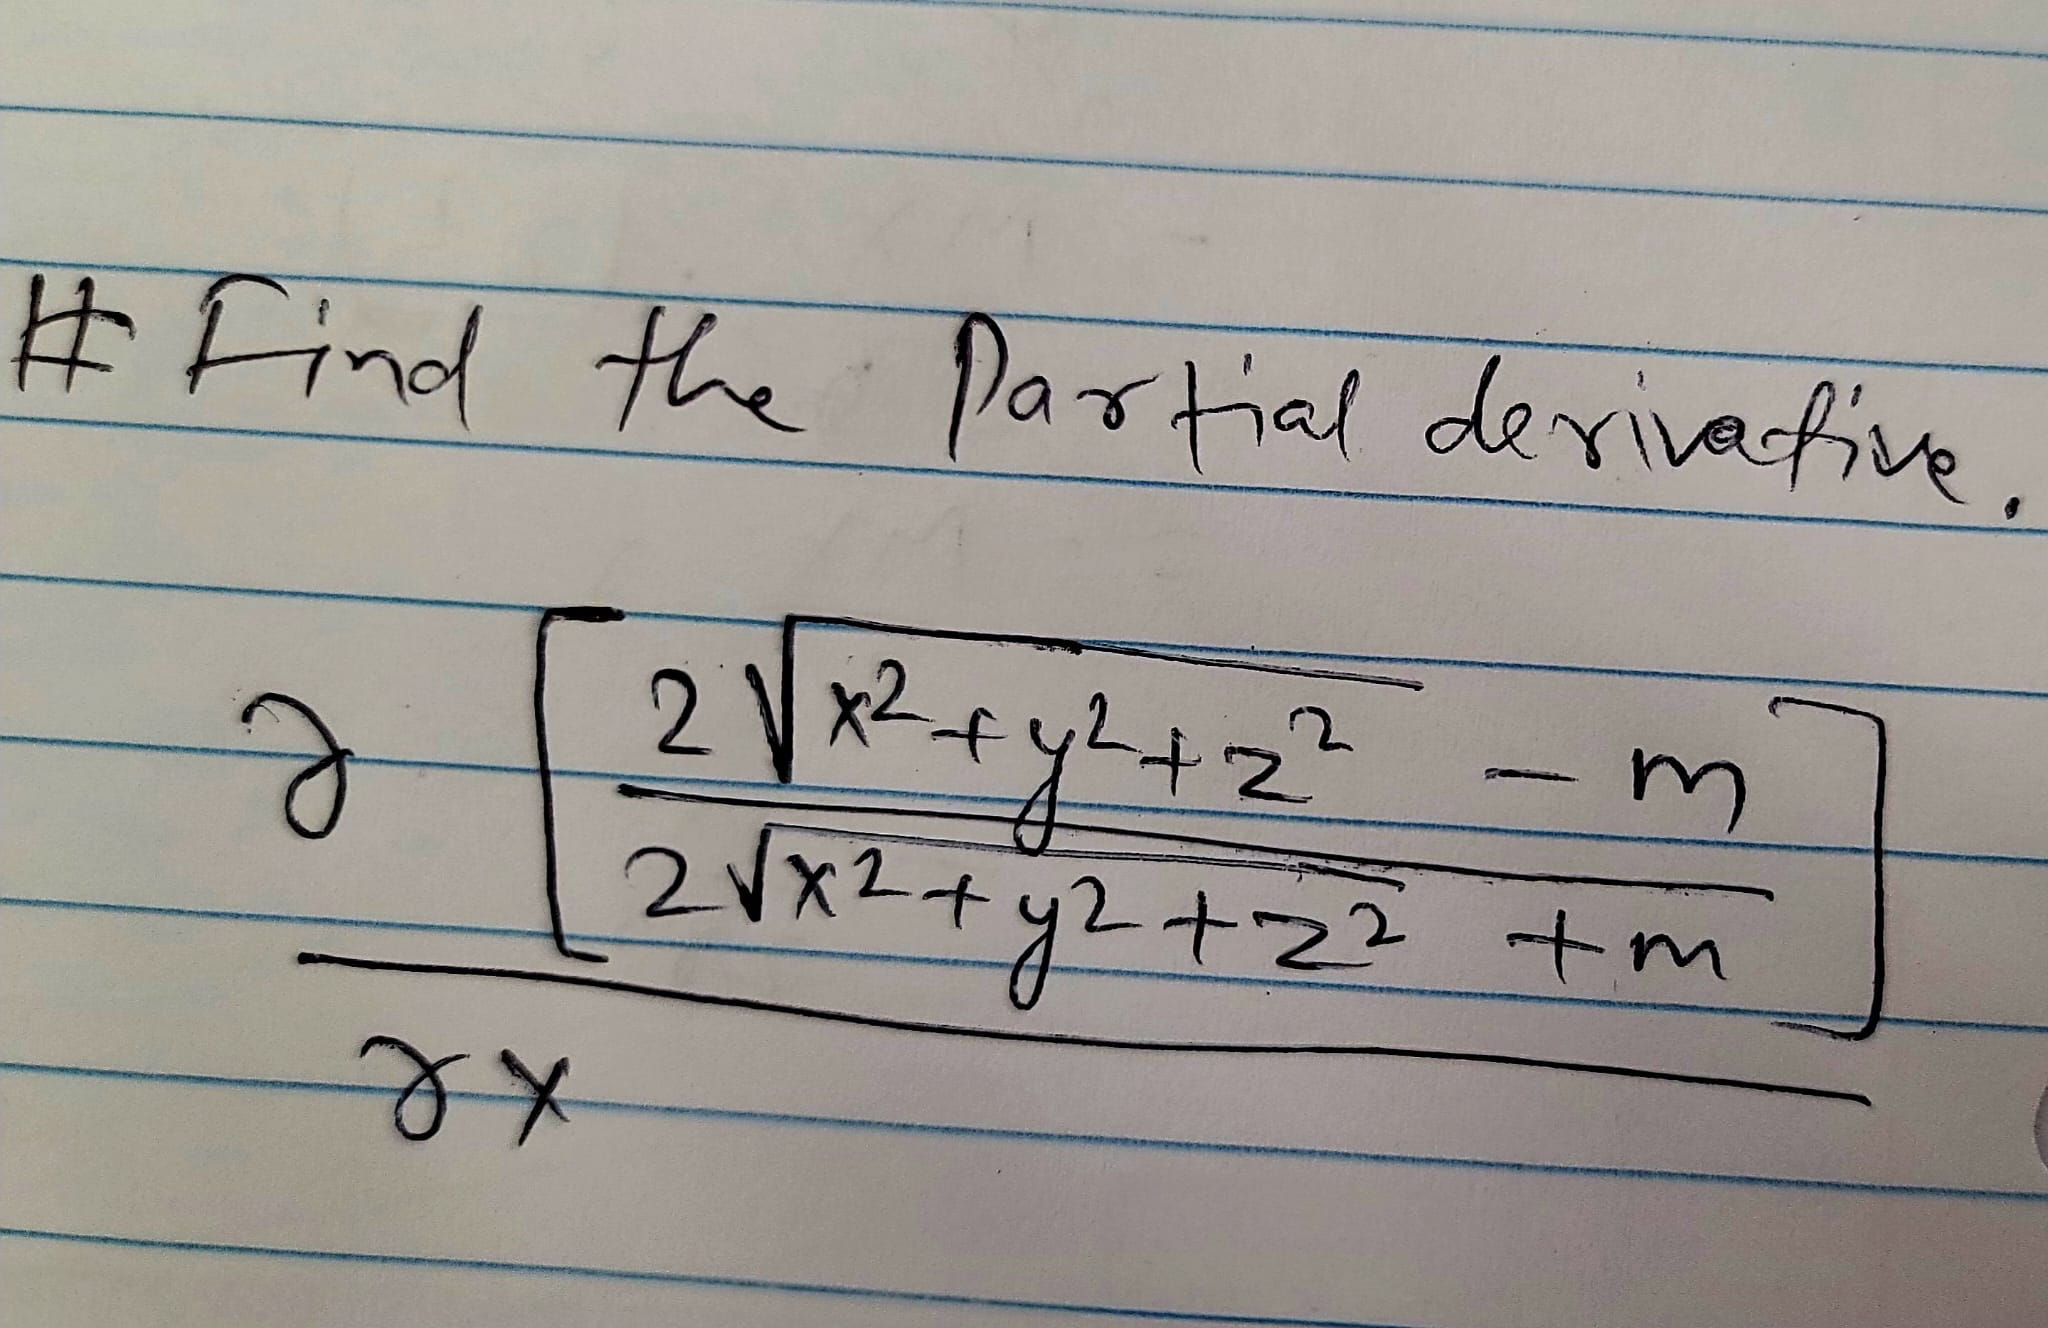 # Find the Partial derivative.
∂ [ 2√x²+y²+z² - m
2√x²+y²+z² + m ]
∂x